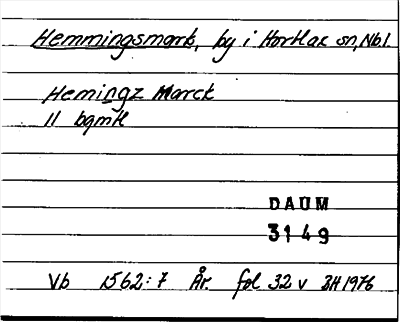 Hemmingsmark, by i Hortlax sn, Nbl.
Hemingz Marck
11 bqmtl
DAUM
3149
Vb 1562:7 År fol 32 v BH 1976